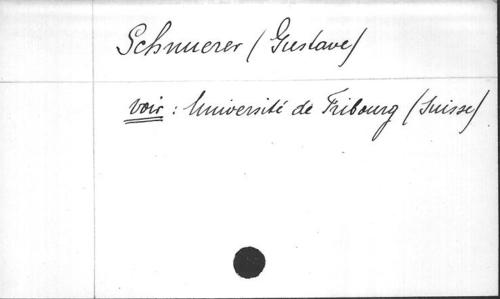 Schnuerer (Gustave)
voir : Université de Fribourg (Suisse)